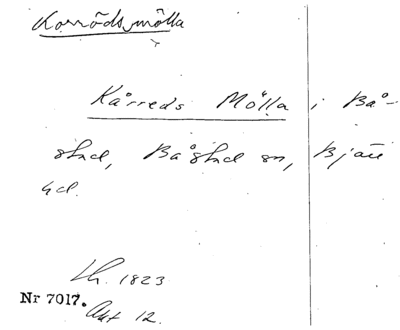 Korrödsmölla
Kårreds Mölla i Bå-
stad, Båstad sn, Bjäre
hd.
Lh. 1823
Nr 7017.
Akt 12.